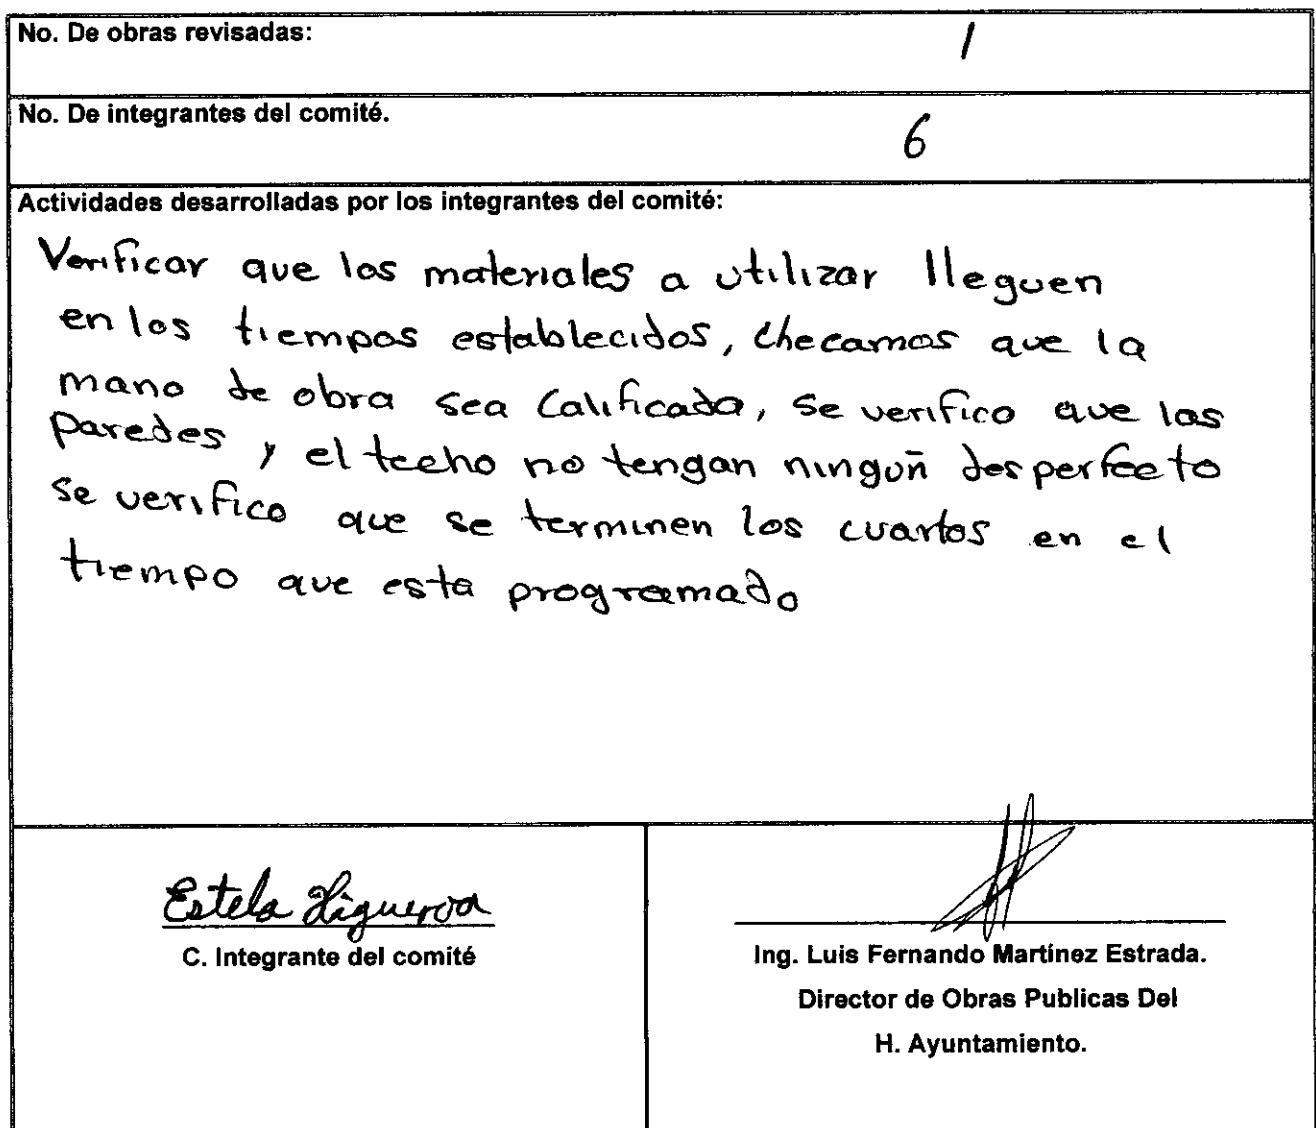 No. De obras revisadas: 1
No. De integrantes del comité. 6
Actividades desarrolladas por los integrantes del comité:
Verificar que los materiales a utilizar lleguen
en los tiempos establecidos, checamos que la
mano de obra sea Calificada, se verifico que las
paredes y el techo no tengan ningun desperfecto
se verifico que se terminen los cuartos en el
tiempo que esta programado
Estela Higueroa
C. Integrante del comité
Ing. Luis Fernando Martínez Estrada.
Director de Obras Publicas Del
H. Ayuntamiento.